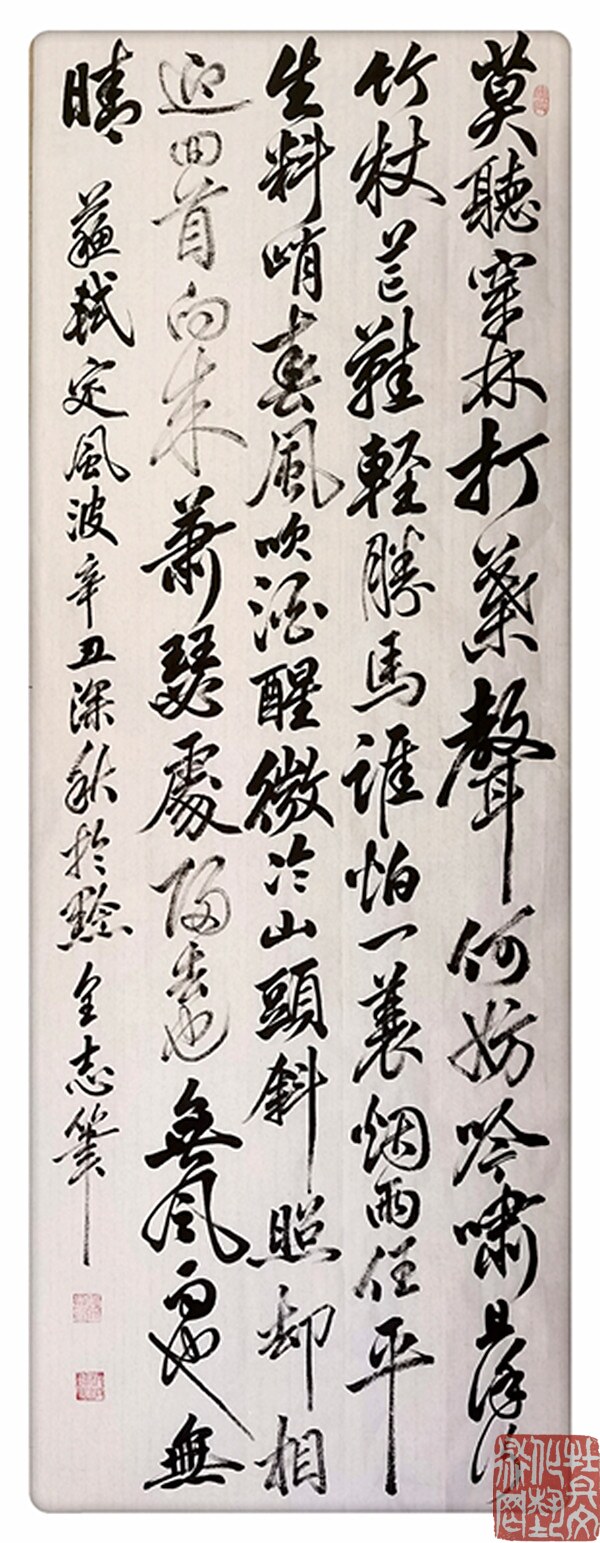 莫聽穿林打葉聲何妨吟嘯且徐行
竹杖芒鞋輕勝馬誰怕一蓑烟雨任平
生料峭春風吹酒醒微冷山頭斜照却相
迎回首向来蕭瑟處歸去也無風雨也無
晴 蘇軾定風波辛丑深秋於黔全志筆